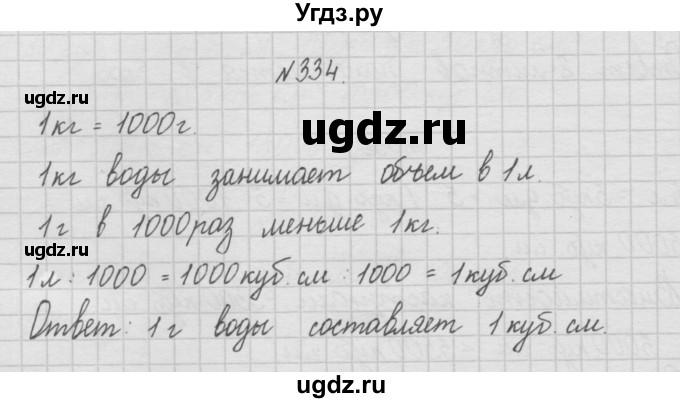 Угдз.ру
№334.
ugdz.ru
1кг = 1000г.
ugdz.ru
1кг воды занимает объем в 1л.
1г в 1000 раз меньше 1кг.
ugdz.ru
1л : 1000 = 1000куб.см : 1000 = 1куб.см
Ответ: 1г воды составляет 1куб.см.
ugdz.ru